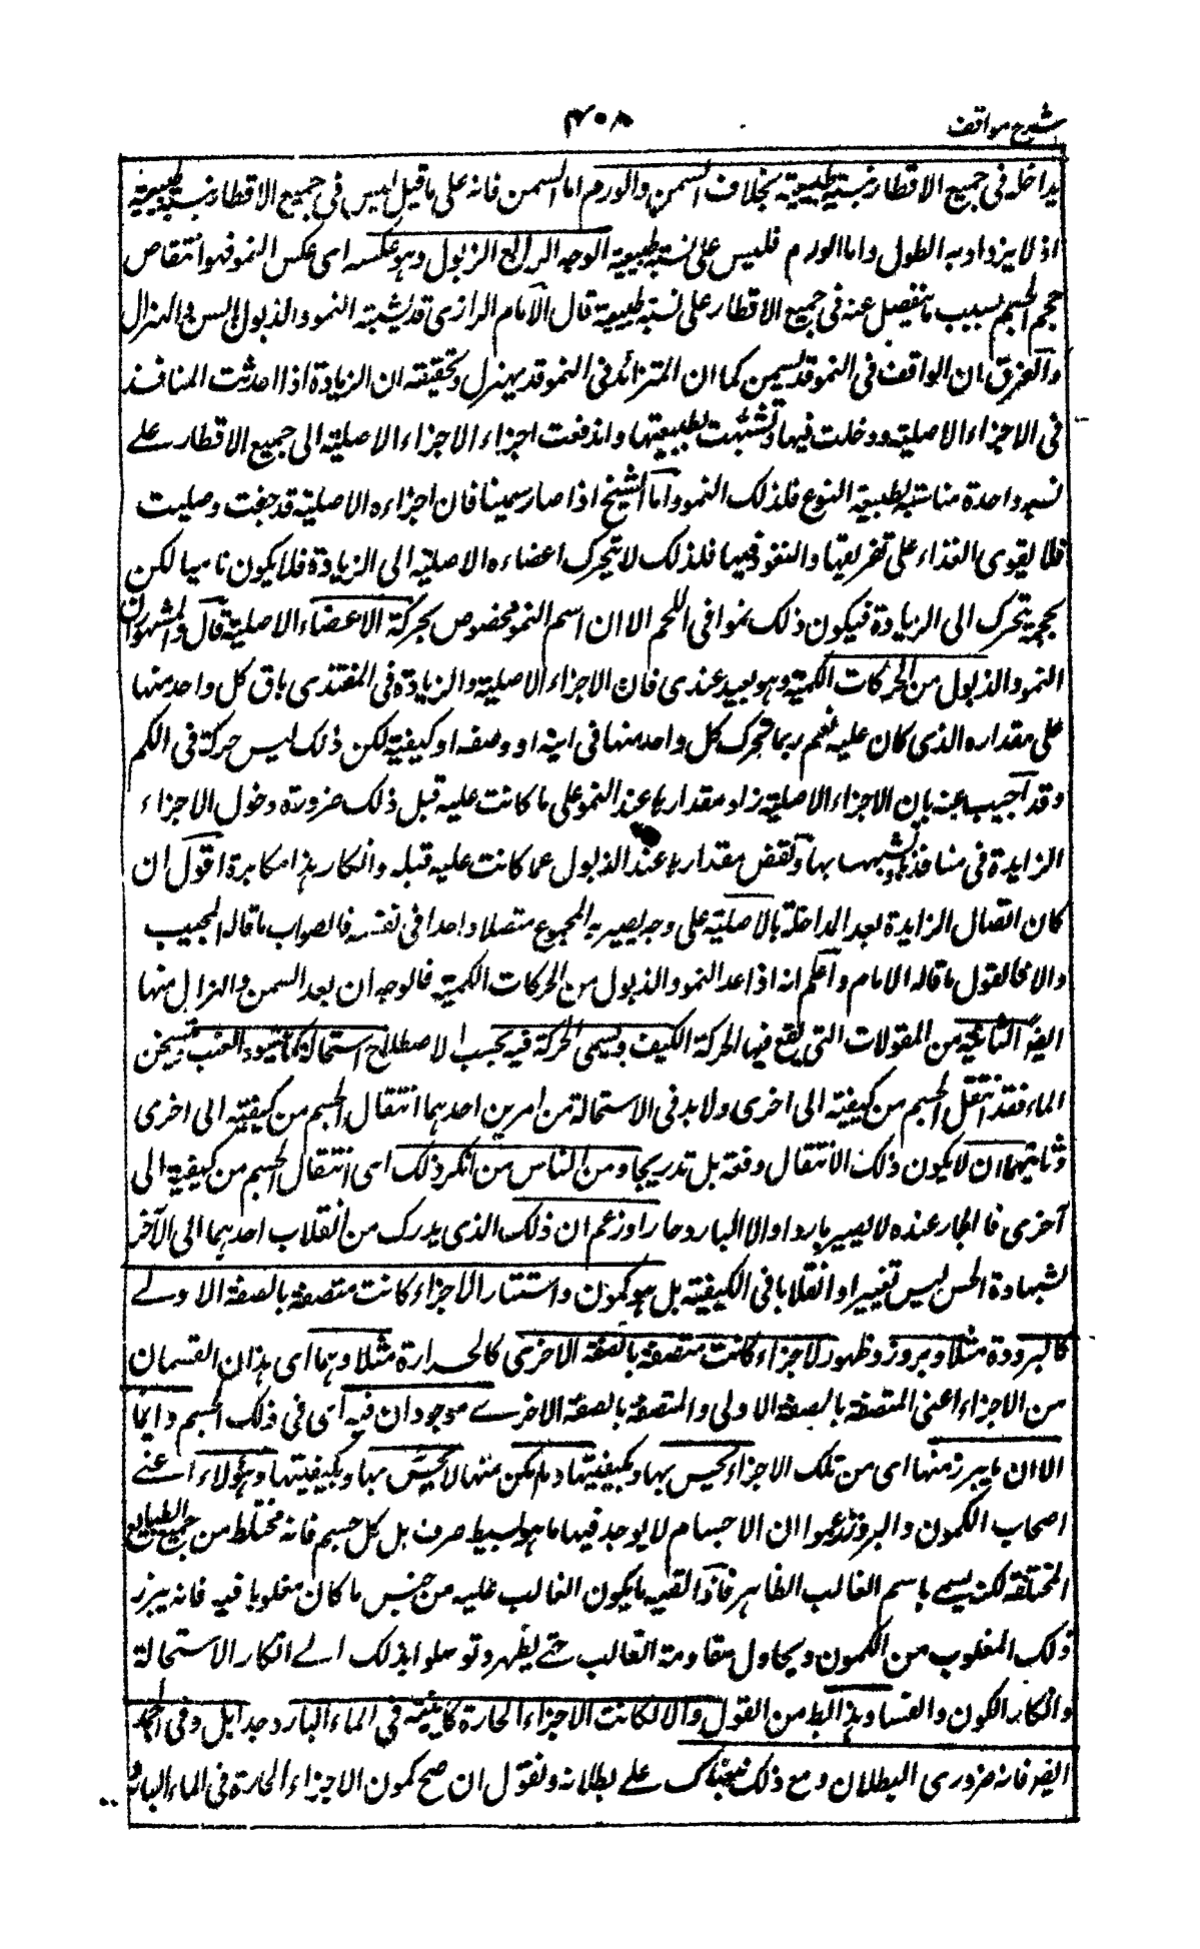 شرح مواقف
٤٠٨
يداخله في جميع الاقطار بنسبة طبيعية بخلاف السمن والورم اما السمن فانه على ما قيل ليس في جميع الاقطار بنسبة طبيعية
اذ لا يزداد به الطول واما الورم فليس على نسبة طبيعية الوجه الرابع الذبول وهو عكسه اى عكس النمو فهو انتقاص
حجم الجسم بسبب ما ينفصل عنه في جميع الاقطار على نسبة طبيعية قال الامام الرازى قد يشتبه النمو والذبول بالسمن والهزال
والفرق ان الواقف في النمو قد يسمن كما ان المتزائد في النمو قد يهزل وتحقيقه ان الزيادة اذا احدثت المنافذ
في الاجزاء الاصلية ودخلت فيها وتشبهت بطبيعتها واندفعت اجزاء الاجزاء الاصلية الى جميع الاقطار على
نسبه واحدة مناسبة لطبيعة النوع فلذلك النمو واما الشيخ اذا صار سمينا فان اجزاءه الاصلية قد جفت وصلبت
فلا يقوى الغذاء على تفريقها والنفوذ فيها فلذلك لا يتحرك اعضاءه الاصلية الى الزيادة فلا يكون ناميا لكن
لحمه يتحرك الى الزيادة فيكون ذلك نموا في اللحم الا ان اسم النمو مخصوص بحركة الاعضاء الاصلية قال والمشهور ان
النمو والذبول من الحركات الكمية وهو بعيد عندى فان الاجزاء الاصلية والزيادة في المغتذى باق كل واحد منها
على مقداره الذى كان عليه نعم ربما تحرك كل واحد منها في اينه او وصفه او كيفيته لكن ذلك ليس حركة في الكم
وقد اجيب عنه بان الاجزاء الاصلية زاد مقدارها عند النمو على ما كانت عليه قبل ذلك ضرورة دخول الاجزاء
الزايدة في منافذها وتشبهها بها ونقص مقدارها عند الذبول عما كانت عليه قبله وانكار هذا مكابرة اقول ان
كان اتصال الزايدة بعد المداخلة بالاصلية على وجه يصير به المجموع متصلا واحدا في نفسه فالصواب ما قاله المجيب
والا فالقول ما قاله الامام واعلم انه اذا عد النمو والذبول من الحركات الكمية فالوجه ان يعد السمن والهزال منها
ايضا الثانية من المقولات التى يقع فيها الحركة الكيف ويسمى الحركة فيه بحسب الاصطلاح استحالة كما يتسود العنب ويتسخن
الماء فقد انتقل الجسم من كيفية الى اخرى ولا بد في الاستحالة من امرين احدهما انتقال الجسم من كيفية الى اخرى
وثانيهما ان لا يكون ذلك الانتقال دفعة بل تدريجا ومن الناس من انكر ذلك اى انتقال الجسم من كيفية الى
اخرى فالحار عنده لا يصير باردا ولا البارد حارا وزعم ان ذلك الذى يدرك من انقلاب احدهما الى الآخر
بشهادة الحس ليس تغييرا وانقلابا في الكيفية بل هو كمون واستتار لاجزاء كانت متصفة بالصفة الاولى
كالبرودة مثلا وبروز وظهور لاجزاء كانت متصفة بالصفة الاخرى كالحرارة مثلا وهما اى هذان القسمان
من الاجزاء اعنى المتصفة بالصفة الاولى والمتصفة بالصفة الاخرى موجودان فيه اى في ذلك الجسم دايما
الا ان ما يبرز منها اى من تلك الاجزاء يحس بها وبكيفيتها وما كمن منها لا يحس بها وبكيفيتها وهؤلاء اعنى
اصحاب الكمون والبروز زعموا ان الاجسام لا يوجد فيها ما هو بسيط صرف بل كل جسم فانه مختلط من جميع الطبايع
المختلفة لكنه يسمى باسم الغالب الظاهر فاذا لقيه ما يكون الغالب عليه من جنس ما كان مغلوبا فيه فانه يبرز
ذلك المغلوب من الكمون ويحاول مقاومة الغالب حتى يظهر وتوسلوا بذلك الى انكار الاستحالة
وانكار الكون والفساد وهذا ابطل من القول والا لكانت الاجزاء الحارة كامنة في الماء البارد جدا بل وفي الجمد
ايضا فانه ضرورى البطلان ومع ذلك على بطلانه ونقول ان صح كمون الاجزاء الحارة في الماء البارد